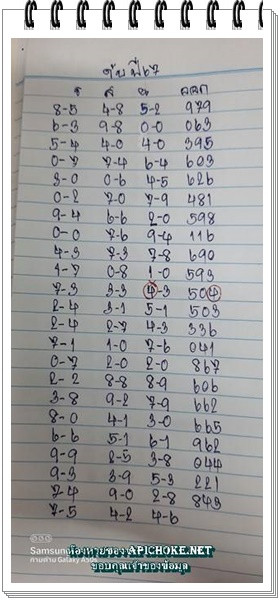 จ ส น ออก
8-5 4-8 5-2 979
6-3 9-8 0-0 063
5-4 4-0 4-0 395
0-7 7-4 6-4 603
3-0 0-6 4-5 626
0-2 7-0 7-9 481
9-4 6-6 2-0 598
0-0 7-6 9-4 116
4-3 7-3 7-8 690
1-7 0-8 1-0 593
7-3 3-3 4-3 504
2-4 3-1 5-1 503
2-4 2-7 4-3 336
7-1 1-0 7-6 041
0-7 2-0 2-0 867
2-2 8-8 8-9 606
3-8 9-2 7-9 662
8-0 4-1 3-0 665
6-6 5-1 6-1 962
9-9 2-5 3-8 044
9-3 3-9 5-3 221
7-4 9-0 2-8 843
7-5 4-2 4-6
Samsung
ถ่ายด้วย Galaxy A
APICHOKE.NET
ขอบคุณเจ้าของข้อมูล